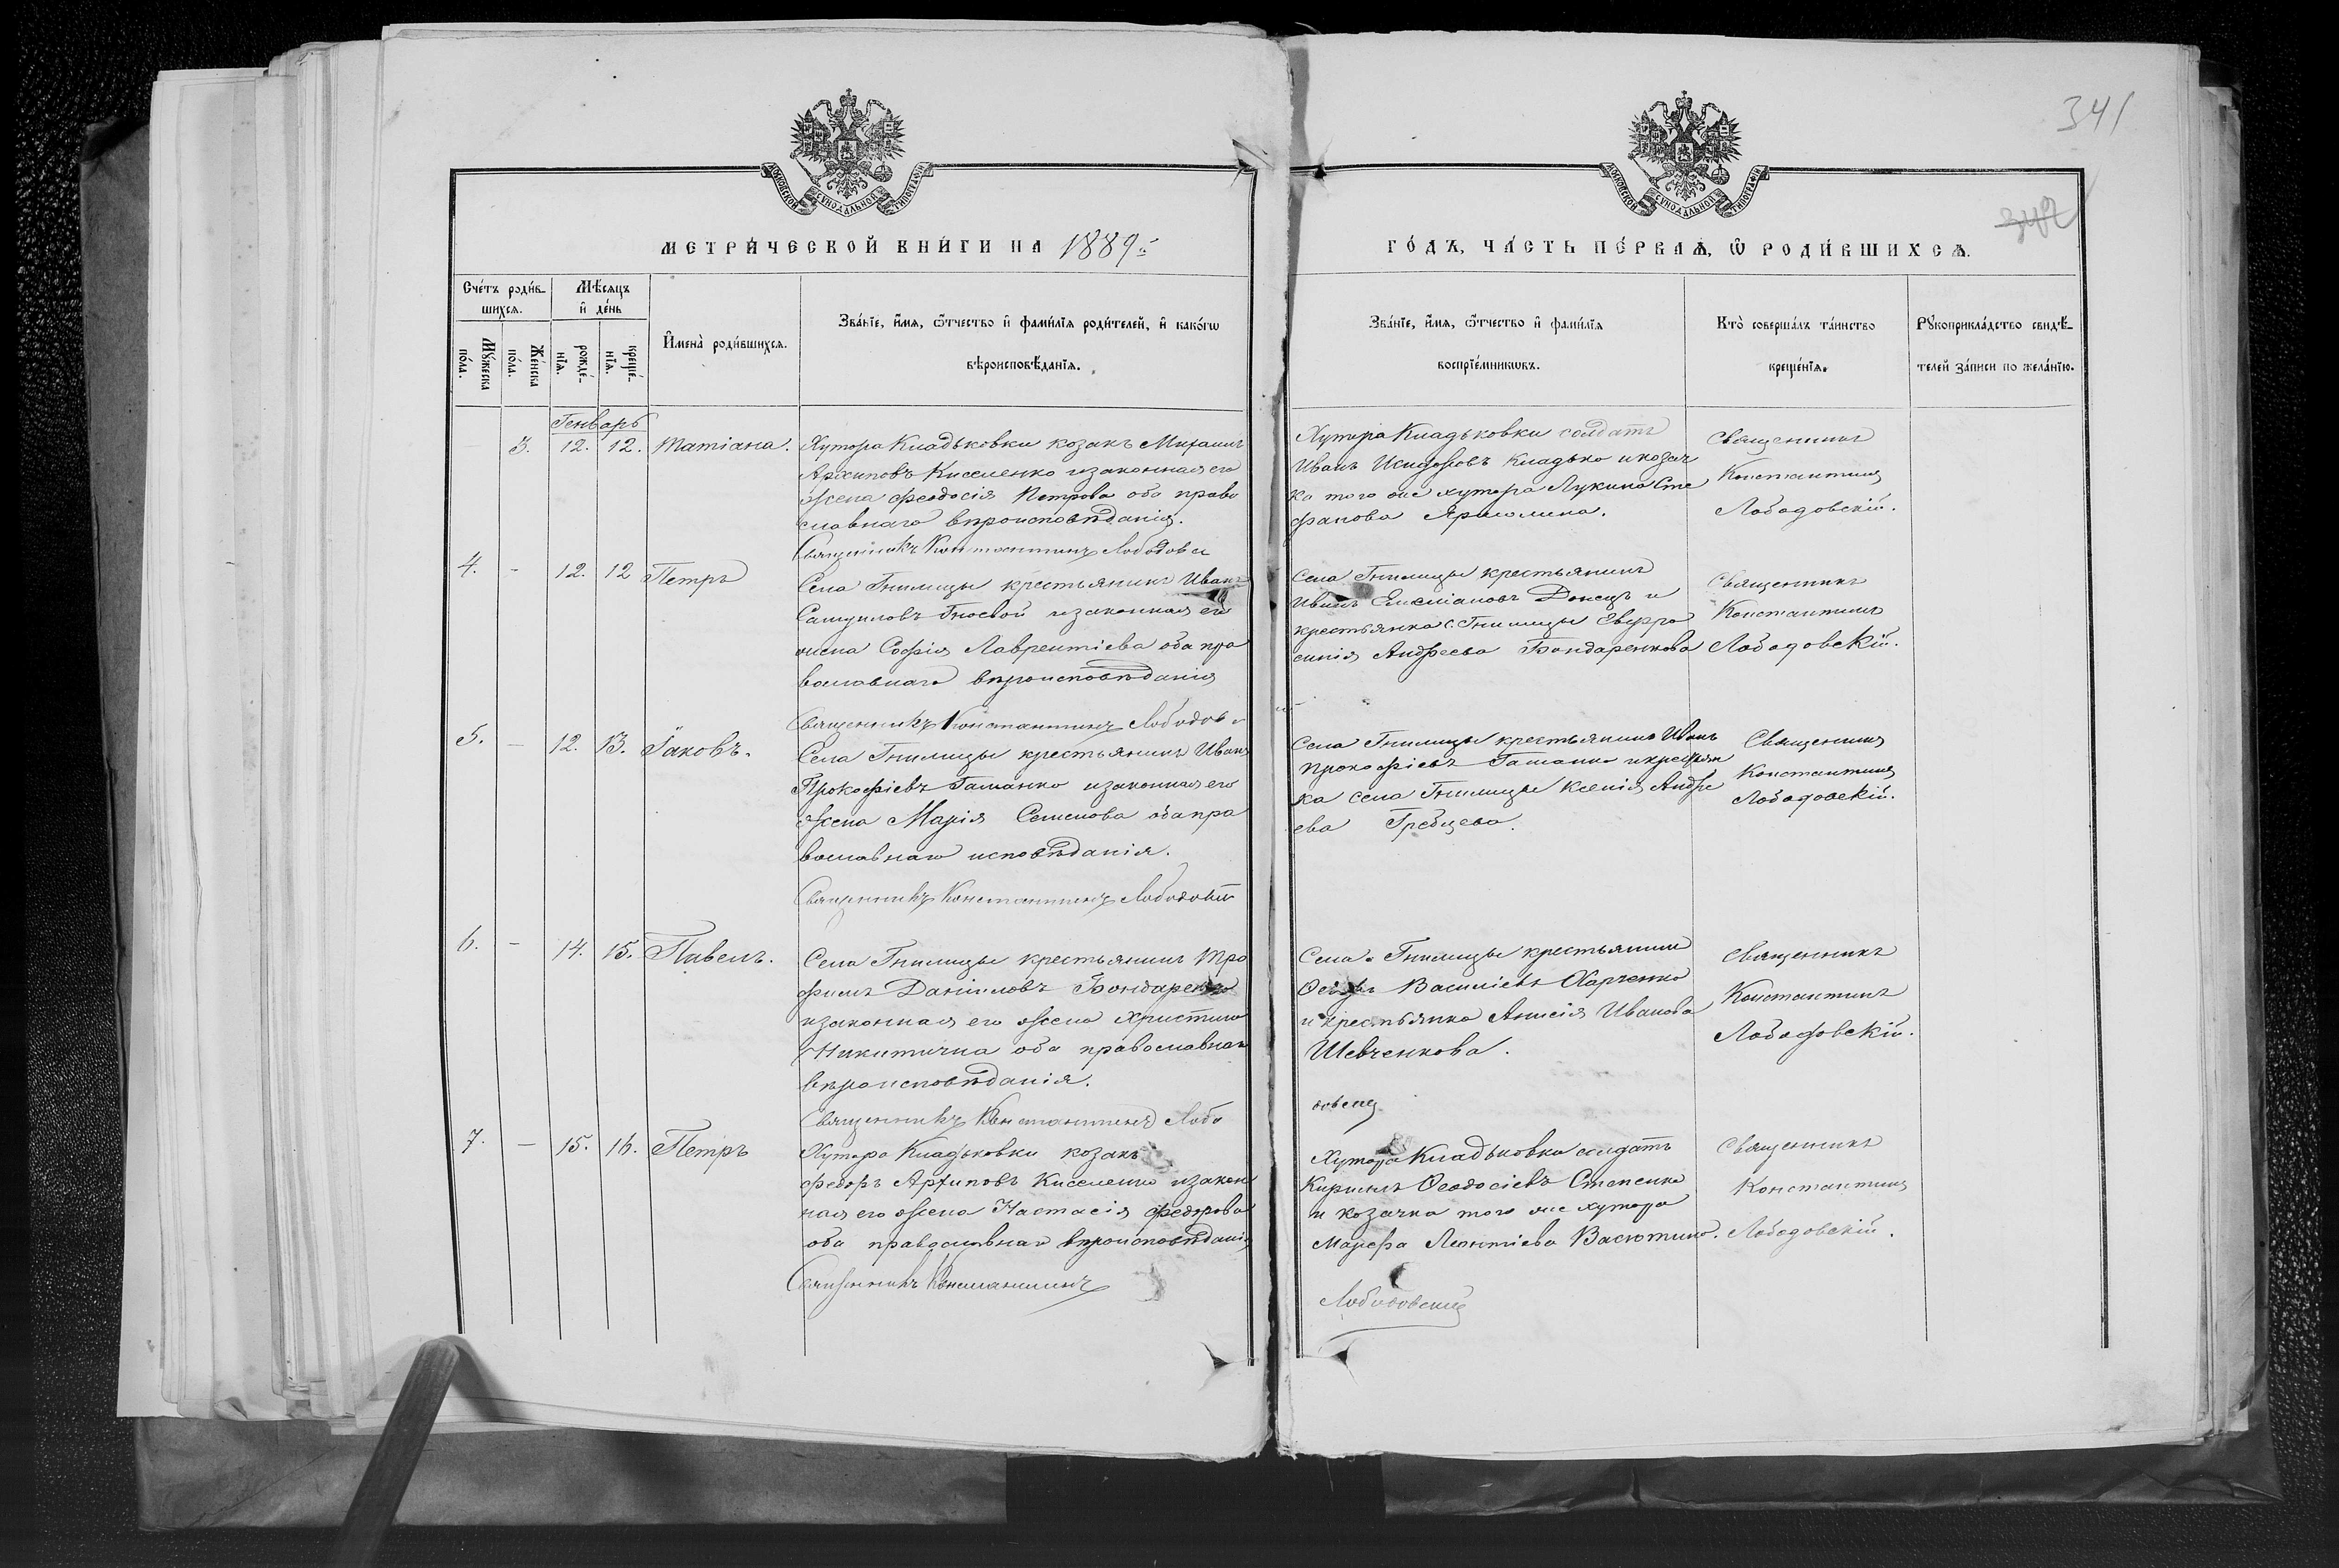 341
342
МОСКОВСКОЙ СѴНОДАЛЬНОЙ ТИПОГРАФІИ
МОСКОВСКОЙ СѴНОДАЛЬНОЙ ТИПОГРАФІИ
МЕТРИ́ЧЕСКОЙ КНИ́ГИ НА 1889й
ГО́ДЪ, ЧА́СТЬ ПЕ́РВАѦ, Ѿ РОДИ́ВШИХСѦ.
Сче́тъ роди́в-
шихсѧ.
Мѣ́сѧцъ
и҆ де́нь
Мꙋ́жеска
по́ла.
Же́нска
по́ла.
рожде́-
нїѧ.
креще́-
нїѧ.
И҆мена̀ роди́вшихсѧ.
Зва́нїе, и҆́мѧ, ѻ҆́тчество и҆ фами́лїѧ роди́телей, и҆ како́гѡ
вѣроисповѣ́данїѧ.
Зва́нїе, и҆́мѧ, ѻ҆́тчество и҆ фами́лїѧ
воспрїе́мникѡвъ.
Кто̀ соверша́лъ та́инство
креще́нїѧ.
Рꙋкоприкла́дство свидѣ́-
телей за́писи по жела́нїю.
Генварь
3. 12. 12. Татіана.
Хутора Кладьковки козакъ Михаилъ
Архиповъ Киселенко и законная его
жена Феодосія Петрова оба право
славнаго вѣроисповѣданія.
Священникъ Константинъ Лободовс
Хутора Кладьковки солдатъ
Иванъ Исидоровъ Кладько и козач
ка того же хутора Лукина Сте
фанова
Священникъ
Константинъ
Лободовскій.
4. - 12. 12 Петръ
Села Гнилицы крестьянинъ Иванъ
Самуиловъ Гноевой и законная его
жена Софія Лаврентіева оба пра
вославнаго вѣроисповѣданія
Священникъ Константинъ Лободов
Села Гнилицы крестьянинъ
Иванъ Емеліановъ Донецъ и
крестьянка с. Гнилицы Евфро
синія Андреева Бондаренкова
Священникъ
Константинъ
Лободовскій.
5. - 12. 13. Іаковъ.
Села Гнилицы крестьянинъ Иванъ
Прокофіевъ Гашанко и законная его
жена Марія Семенова оба пра
вославнаго исповѣданія.
Священникъ Константинъ Лободовскій
Села Гнилицы крестьянинъ Иванъ
Прокофіевъ Гашанко и крестьян
ка села Гнилицы Ксенія Андре
ева Гребцева.
Священникъ
Константинъ
Лободовскій.
6. - 14. 15. Павелъ.
Села Гнилицы крестьянинъ Тро
фимъ Даніиловъ Бондаренко
и законная его жена Христина
Никитична оба православнаго
вѣроисповѣданія.
Священникъ Константинъ Лобо
Села Гнилицы крестьянинъ
Василіевъ Харченко
и крестьянка Анисія Иванова
Шевченкова.
довскій
Священникъ
Константинъ
Лободовскій.
7. - 15. 16. Петръ
Хутора Кладьковки козакъ
Федоръ Архиповъ Киселенко и закон
ная его жена Настасія Федорова
оба православнаго вѣроисповѣданія
Священникъ Константинъ
Хутора Кладьковки солдатъ
Кириллъ Феодосіевъ Степенко
и козачка того же хутора
Марфа Леонтіева Васютина.
Лободовскій
Священникъ
Константинъ
Лободовскій.